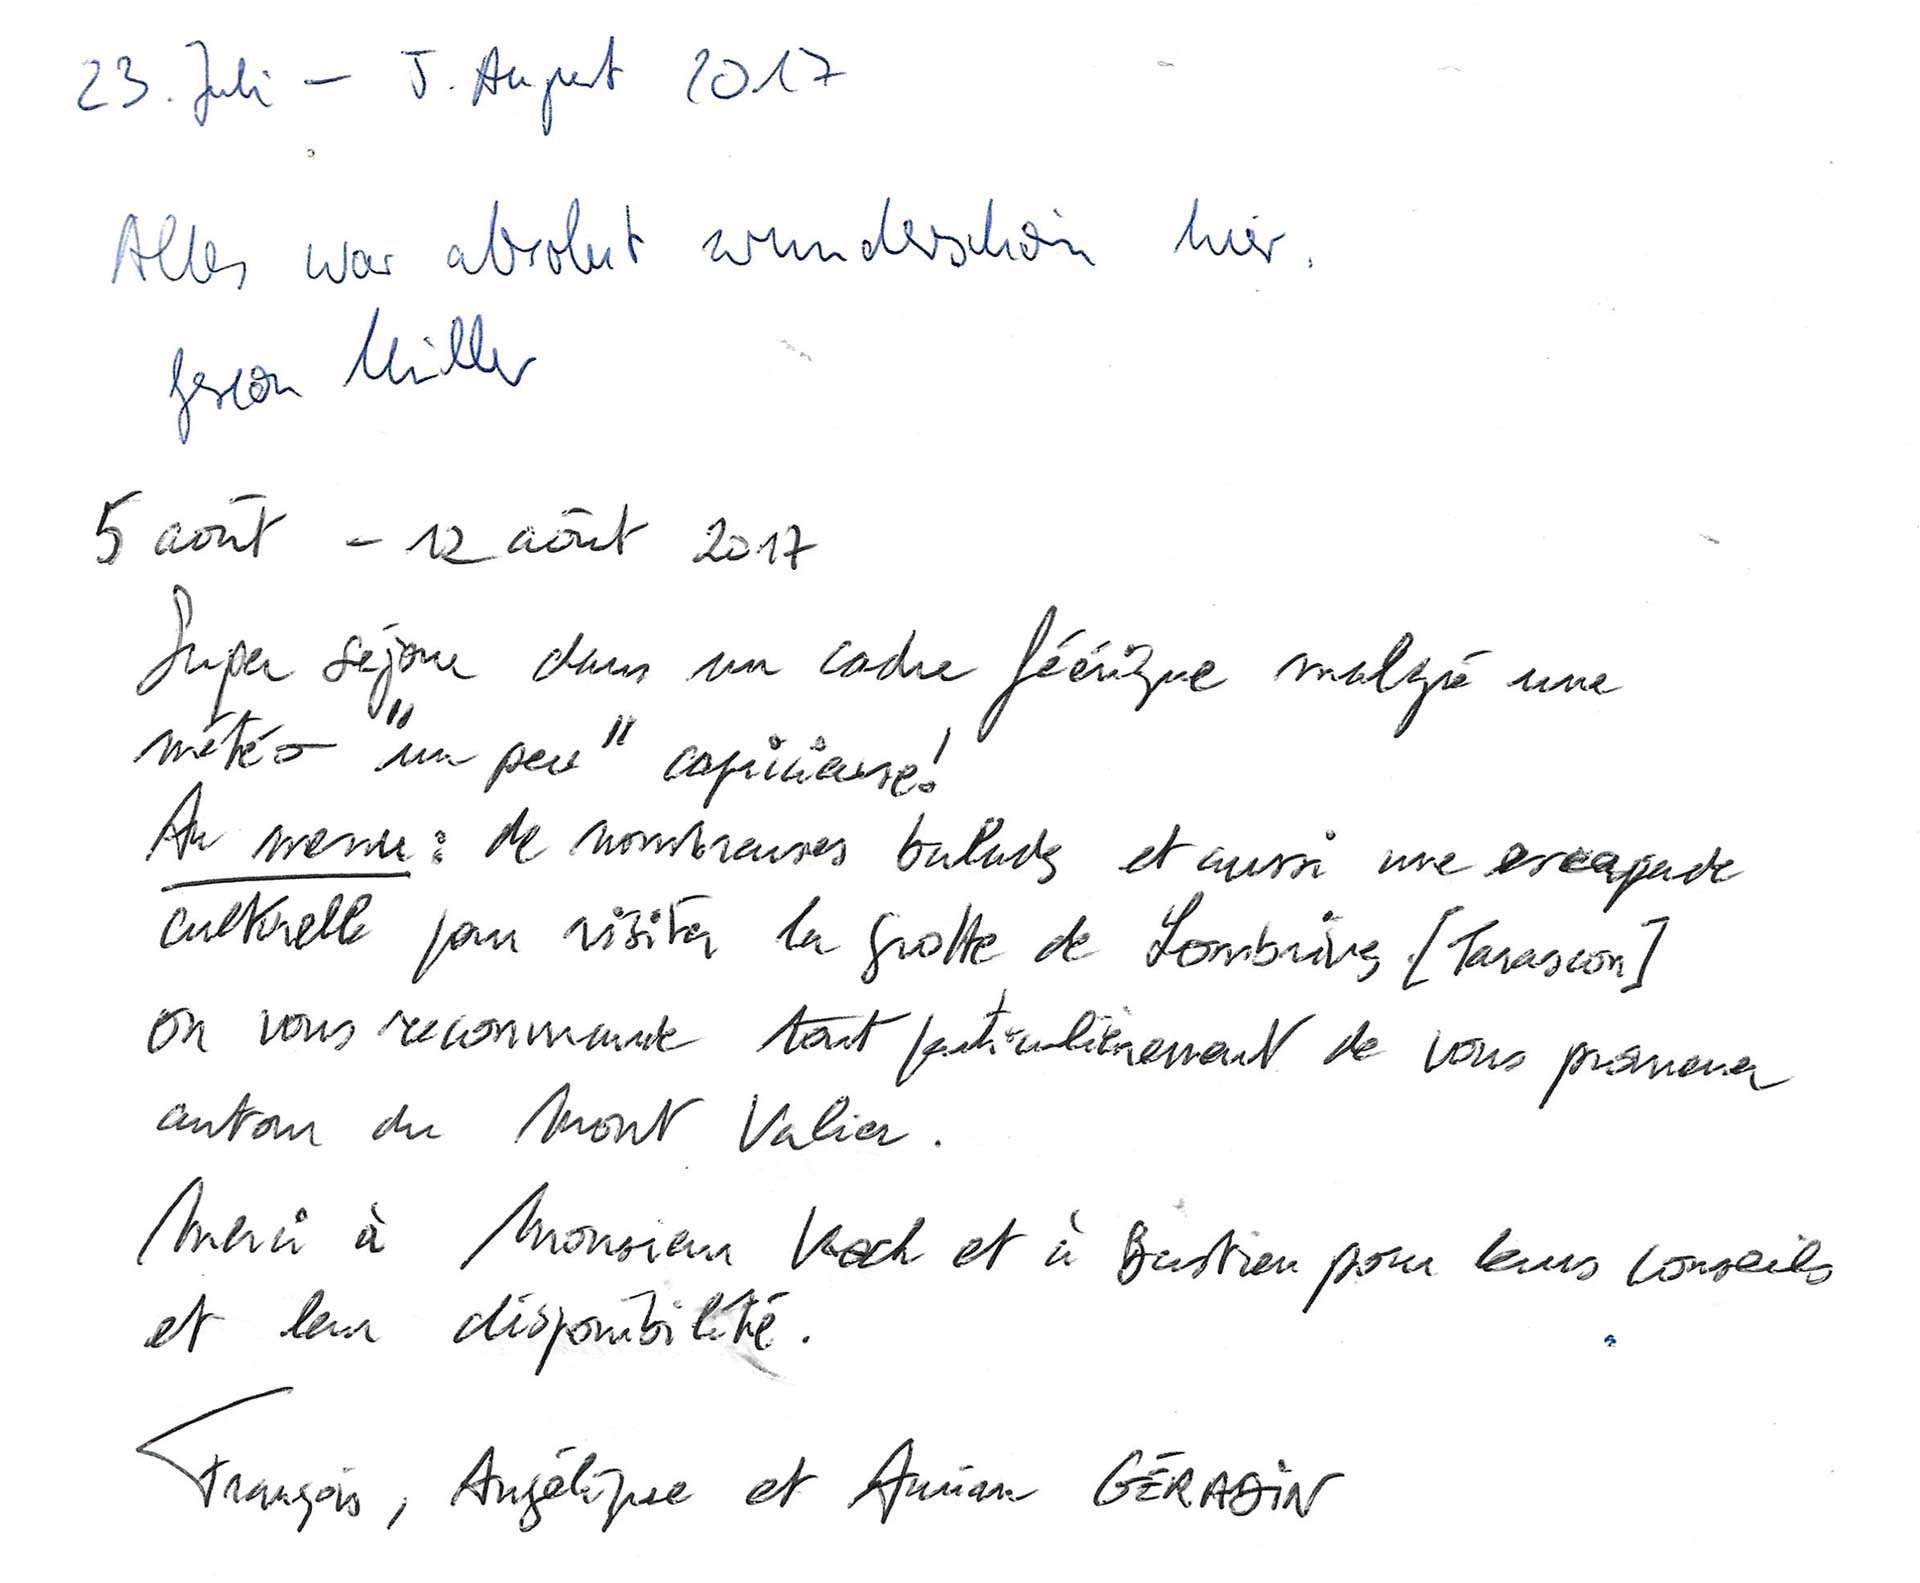 23. Juli – 5. August 2017
Alles war absolut wunderschön hier.
Müller
5 août – 12 août 2017
Super séjour dans un cadre féérique malgré une
météo "un peu" capricieuse!
Au menu : de nombreuses balades et aussi une escapade
culturelle pour visiter la grotte de Lombrives [Tarascon]
On vous recommande tout particulièrement de vous promener
autour du Mont Valier.
Merci à Monsieur Koch et à Bastien pour leurs conseils
et leur disponibilité.
François, Angélique et GÉRADIN